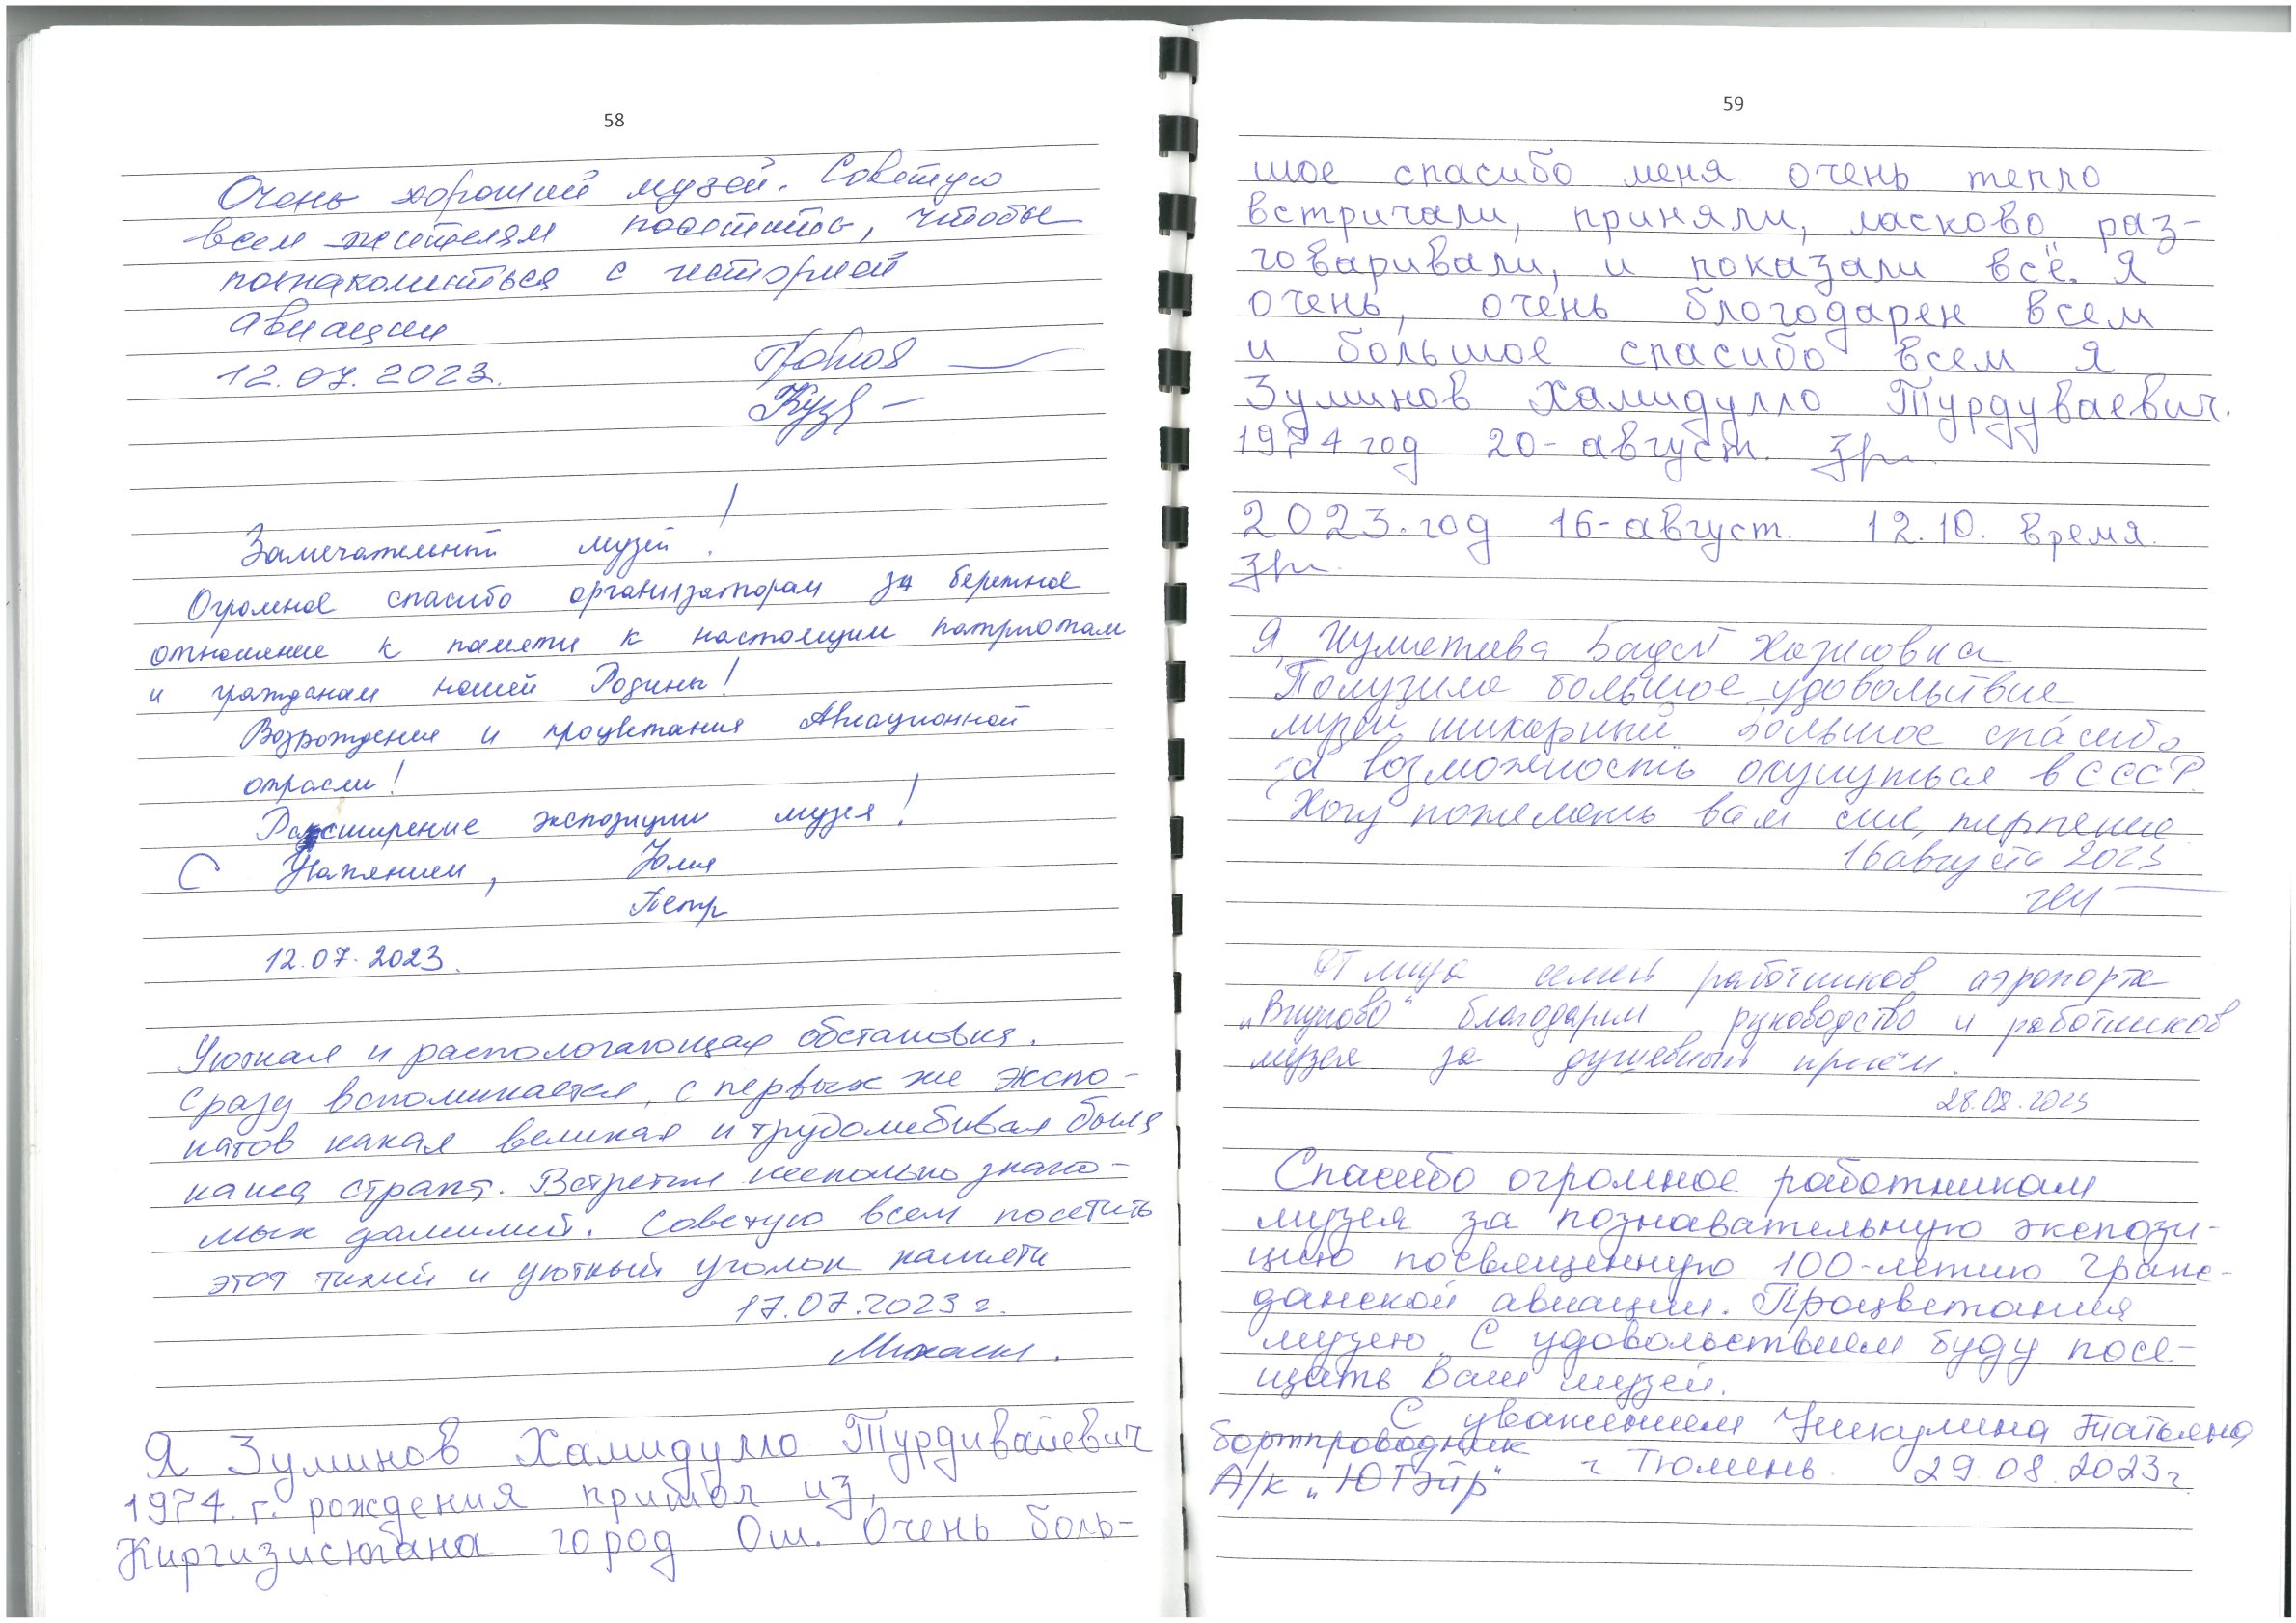 58
Очень хороший музей. Советую
всем жителям посетить, чтобы
познакомиться с историей
авиации
12.07.2023.
Замечательный музей!
Огромное спасибо организаторам за бережное
отношение к памяти к настоящим патриотам
и гражданам нашей Родины!
Возрождения и процветания Авиационной
отрасли!
Расширение экспозиции музея!
С Уважением, Юлия
Петр
12.07.2023.
Уютная и распологающая обстановка.
Сразу вспоминается, с первых же экспо-
натов какая великая и трудолюбивая была
наша страна. Встретил несколько знако-
мых фамилий. Советую всем посетить
этот тихий и уютный уголок памяти
17.07.2023 г.
Михаил.
Я Зуминов Хамидулло Турдивайевич
1974.г. рождения прибыл из,
Киргизистана город Ош. Очень боль-
59
шое спасибо меня очень тепло
встричали, приняли, ласково раз-
говаривали, и показали всё. Я
очень, очень благодарен всем
и большое спасибо всем Я
Зуминов Хамидулло Турдуваевич.
1974 год 20-август.
2023.год 16-август. 12.10. время.
Я,
Получила большое удовольствие
музей шикарный. Большое спасибо
за возможность окунуться в СССР.
Хочу пожелать вам сил, терпение
16 августа 2023
От лица семей работников аэропорта
„Внуково" благодарим руководство и работников
музея за душевный приём.
28.08.2023
Спасибо огромное работникам
музея за познавательную экспози-
цию посвященную 100-летию граж-
данской авиации. Процветания
музею. С удовольствием буду посе-
щать Ваш музей.
С уважением Никулина Татьяна
бортпроводник
А/к „ЮТэйр" г. Тюмень. 29.08.2023г.